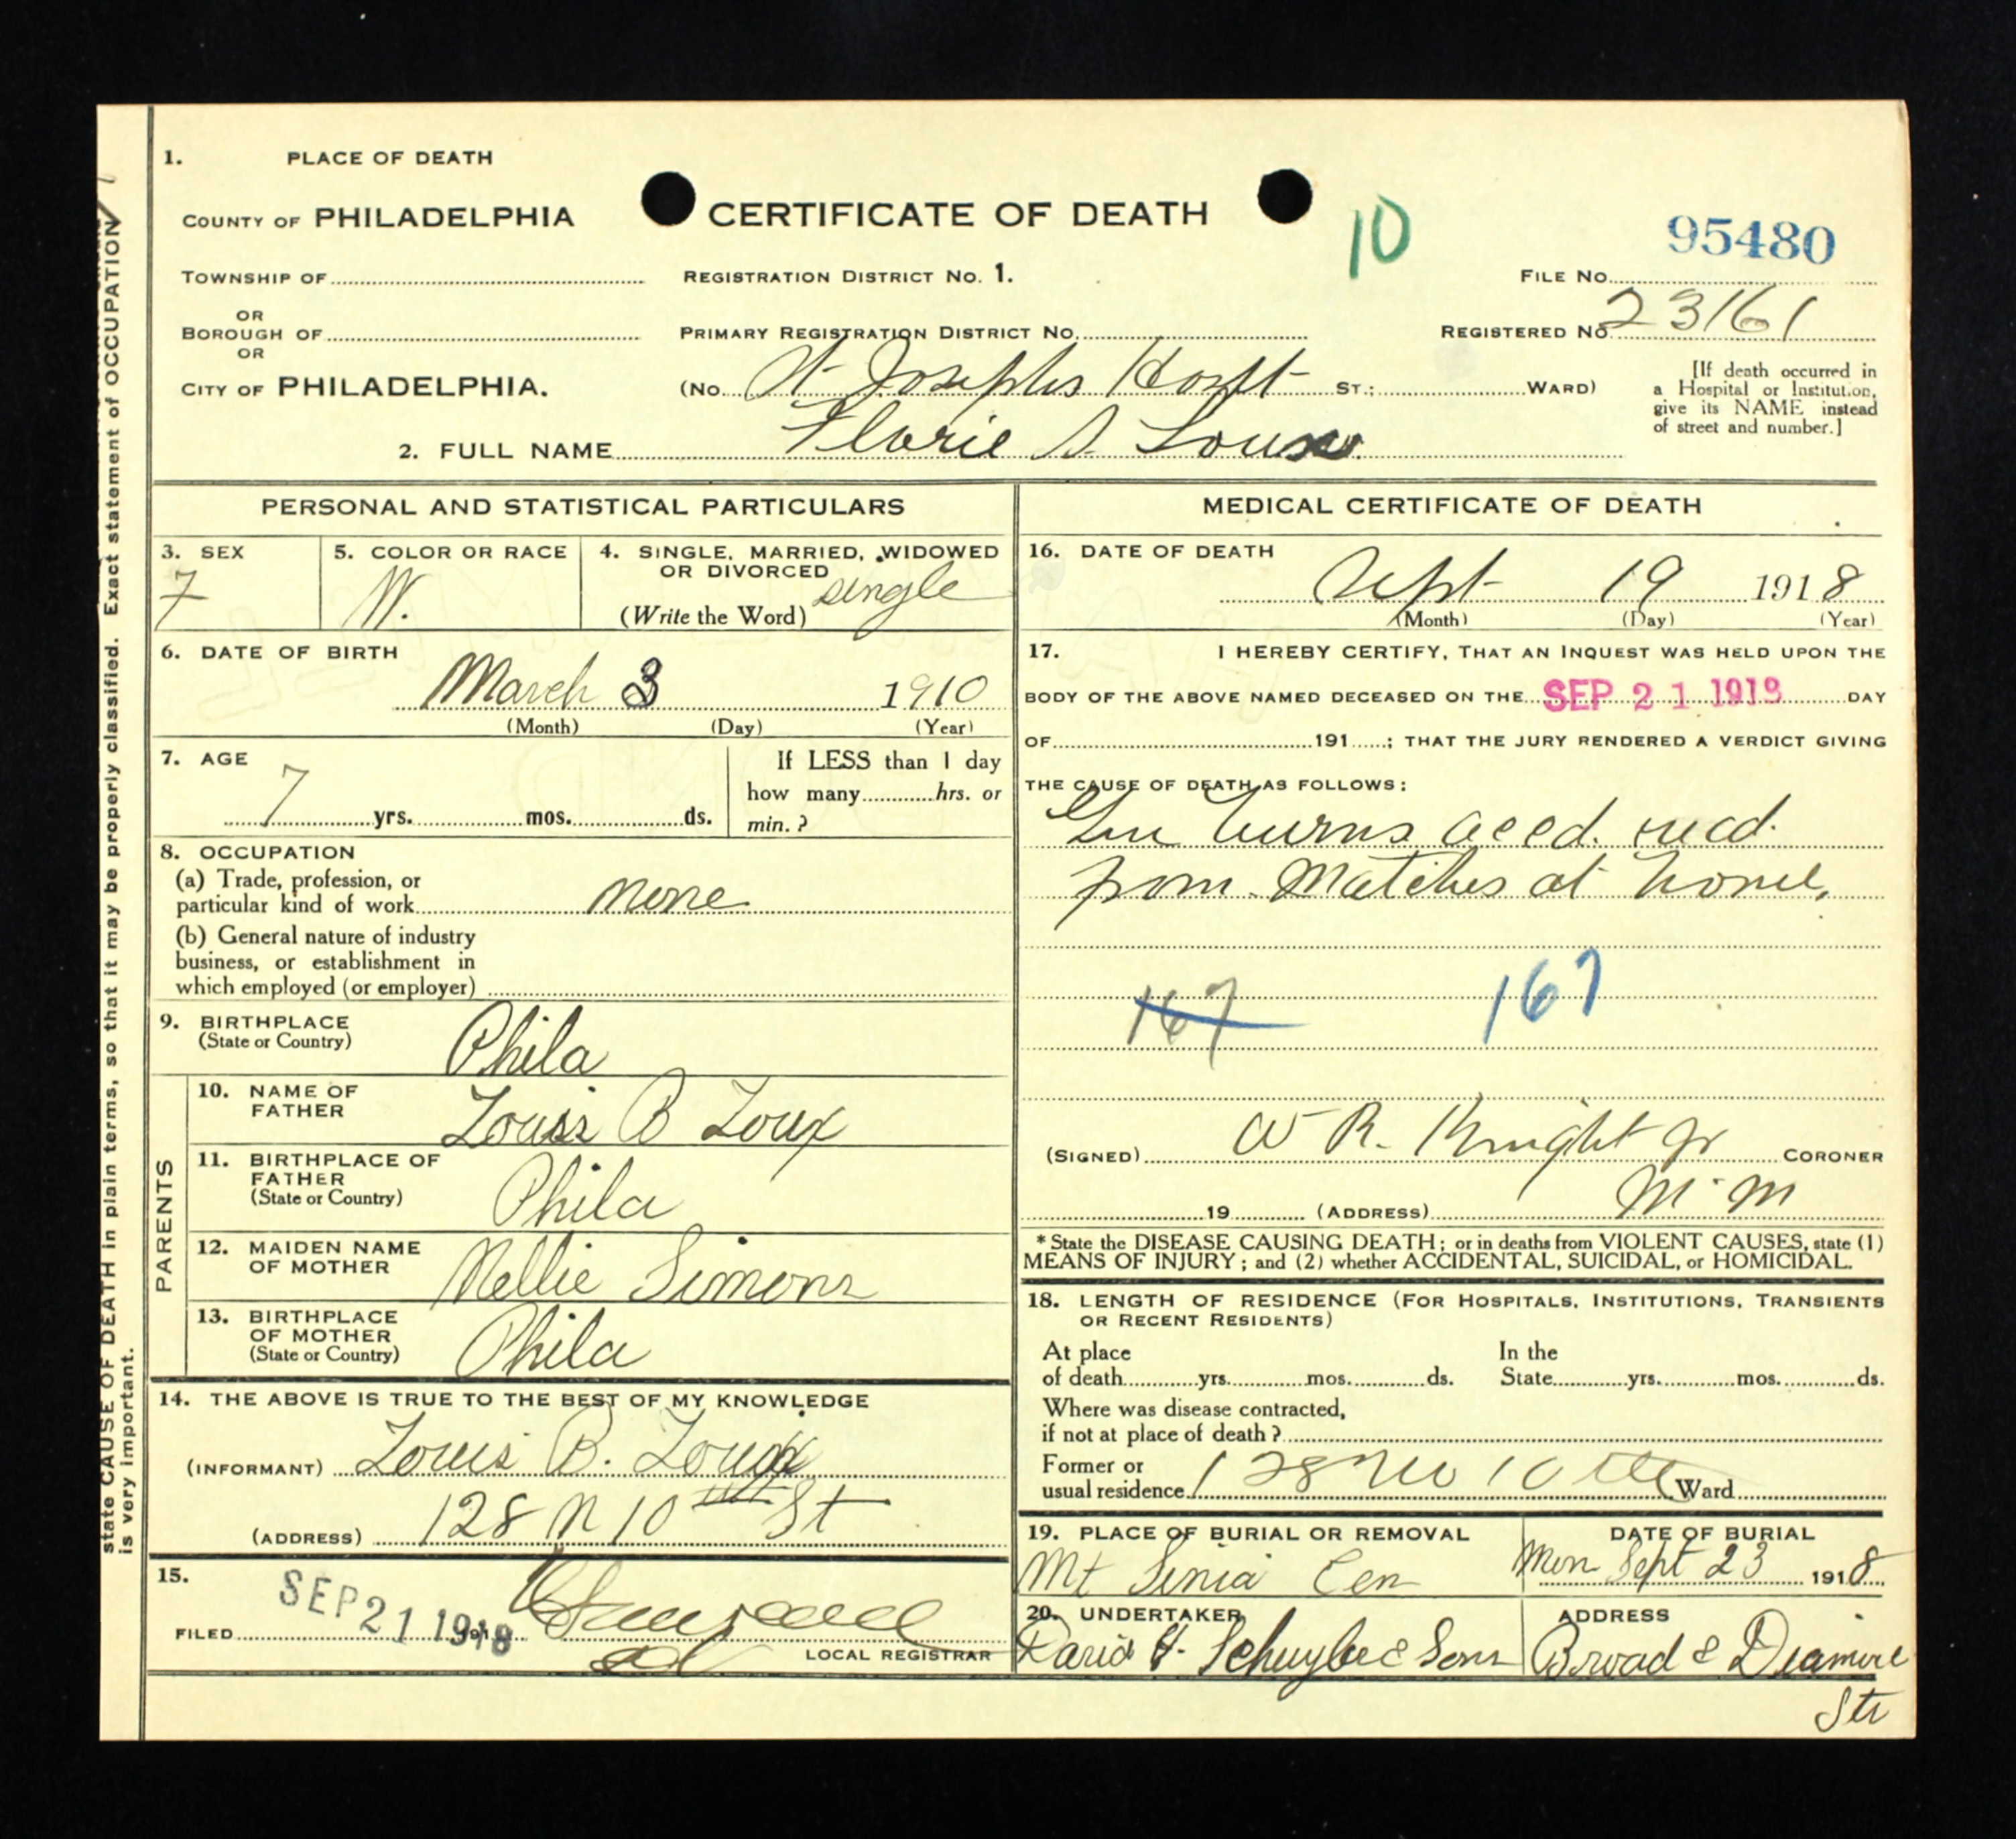 1. PLACE OF DEATH
COUNTY OF PHILADELPHIA
CERTIFICATE OF DEATH
10
95480
TOWNSHIP OF
REGISTRATION DISTRICT No. 1.
FILE No.
OR
BOROUGH OF
PRIMARY REGISTRATION DISTRICT No.
REGISTERED No. 23161
OR
CITY OF PHILADELPHIA.
(No. St Josephs Hospt ST.; WARD)
[If death occurred in
a Hospital or Institution,
give its NAME instead
of street and number.]
2. FULL NAME Florie S. Loux
PERSONAL AND STATISTICAL PARTICULARS
3. SEX
F
5. COLOR OR RACE
W.
4. SINGLE, MARRIED, WIDOWED
OR DIVORCED
(Write the Word) single
6. DATE OF BIRTH
March 3 1910
(Month) (Day) (Year)
7. AGE
7 yrs. mos. ds.
If LESS than 1 day
how many hrs. or
min. ?
8. OCCUPATION
(a) Trade, profession, or
particular kind of work none
(b) General nature of industry
business, or establishment in
which employed (or employer)
9. BIRTHPLACE
(State or Country)
Phila
PARENTS
10. NAME OF
FATHER
Louis B Loux
11. BIRTHPLACE OF
FATHER
(State or Country)
Phila
12. MAIDEN NAME
OF MOTHER
Nellie Simons
13. BIRTHPLACE
OF MOTHER
(State or Country)
Phila
14. THE ABOVE IS TRUE TO THE BEST OF MY KNOWLEDGE
(INFORMANT) Louis B. Loux
(ADDRESS) 128 N 10th St
15.
FILED SEP 21 1918
LOCAL REGISTRAR
MEDICAL CERTIFICATE OF DEATH
16. DATE OF DEATH
Sept 19 1918
(Month) (Day) (Year)
17. I HEREBY CERTIFY, THAT AN INQUEST WAS HELD UPON THE
BODY OF THE ABOVE NAMED DECEASED ON THE SEP 21 1918 DAY
OF 191 ; THAT THE JURY RENDERED A VERDICT GIVING
THE CAUSE OF DEATH AS FOLLOWS:
Gen burns accd. recd.
from Matches at home,
167 167
(SIGNED) W R. Knight Jr CORONER
19 (ADDRESS)
* State the DISEASE CAUSING DEATH; or in deaths from VIOLENT CAUSES, state (1)
MEANS OF INJURY; and (2) whether ACCIDENTAL, SUICIDAL, or HOMICIDAL.
18. LENGTH OF RESIDENCE (FOR HOSPITALS, INSTITUTIONS, TRANSIENTS
OR RECENT RESIDENTS)
At place
of death yrs. mos. ds.
In the
State yrs. mos. ds.
Where was disease contracted,
if not at place of death ?
Former or
usual residence 128 No 10th Ward
19. PLACE OF BURIAL OR REMOVAL
Mt Sinia Cem
DATE OF BURIAL
Mon Sept 23 1918
20. UNDERTAKER
David H. Schuyler & Sons
ADDRESS
Broad & Diamond
Sts
state CAUSE OF DEATH in plain terms, so that it may be properly classified. Exact statement of OCCUPATION
is very important.